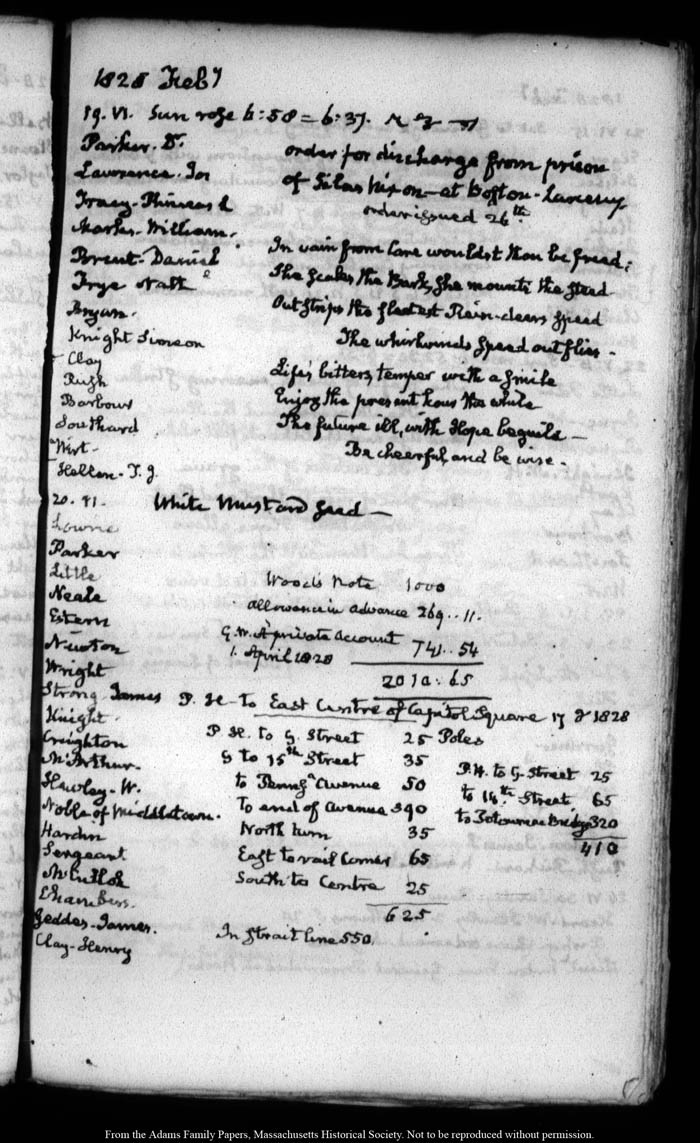 1828 Feby
19. VI. Sun rose 6:58 = 6:37.
Parker. Dr. order for discharge from prison
Lawrence. Jos of Silas Nixon - at Boston - Larceny
Tracy - Phineas L order issued 26th.
Marks - William.
Brent - Daniel In vain from Care wouldst thou be freed;
Frye Natl She scales the Bark, She mounts the steed
Bryan. Outstrips the fleetest Rein-deers speed
Knight Simeon The whirlwinds speed outflies -
Clay Life's bitters, temper with a smile
Rush Enjoy the present hour the while
Barbour The future ill, with Hope beguile -
Southard Be cheerful, and be wise.
Wirt -
Hellen - T. J.
20. VI. White Mustard seed -
Lowrie
Parker
Little Wood's Note 1000
Neale allowance in advance 269.. 11.
Estern G. W. A private account 741.. 54
Newton 1. April 1828
Wright 2010: 65
Strong James P. H - to East Centre of Capitol Square 17 1828
Knight. P. H. to G. Street 25 Poles
Creighton G to 15th Street 35 P. H. to G. Street 25
McArthur. to Pennsa. Avenue 50 to 14th Street, 65
Hawley - W. To end of Avenue 390 to Potowmac Bridge 320
Noble of Middletown. North turn 35 410
Hardin East to rail Corner 65
Sergeant South to Centre 25
McCulloh 625
Chambers.
Geddes - James. In strait line 550.
Clay - Henry
From the Adams Family Papers, Massachusetts Historical Society. Not to be reproduced without permission.